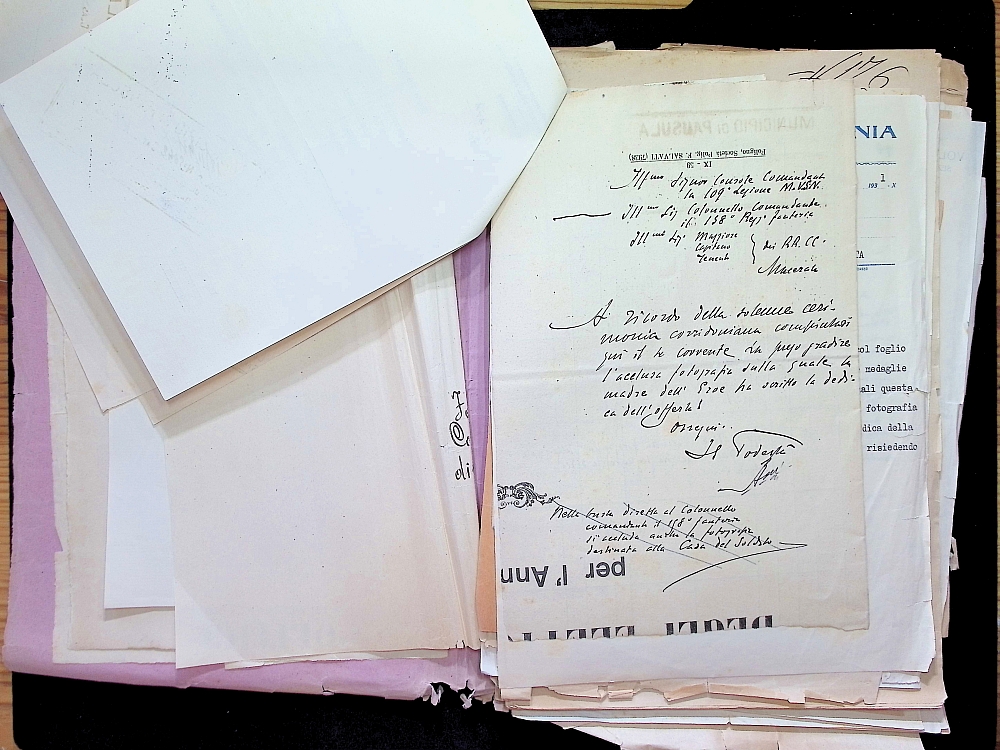 MUNICIPIO DI PAUSULA
Foligno, Società Polig. F. SALVATI (1928)
IX - 30
Ill.mo Signor Console Comandante
la 109ª Legione M.V.S.N.
Ill.mo Sig. Colonnello Comandante
il 158° Regg. fanteria
Ill.mi Sig. Maggiore
Capitano
Tenente
dei RR. CC.
Macerata
A ricordo della solenne ceri-
monia corridoniana compiutasi
qui il corrente La prego gradire
l'acclusa fotografia sulla quale la
madre dell'Eroe ha scritto la dedi-
ca dell'offerta!
Ossequi.
Il Podestà
Nella busta diretta al Colonnello
comandante il 158° fanteria
si accluda anche la fotografia
destinata alla Casa del Soldato
per l'Ann
DEGLI ELET
NIA
193 X
1
TA
ol foglio
medaglie
ali questa
fotografia
dica della
risiedendo
di